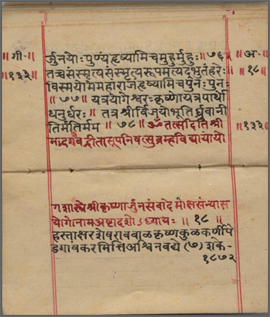 ॥ गी॰ ॥ र्जुनयोः पुण्यं हृष्यामिचमुहुर्मुहुः ॥ ७६ ॥ अ॰
॥ १३२ ॥ तच्चसंस्मृत्यसंस्मृत्यरूपमत्यद्भुतंहरेः ॥ १८ ॥
विस्मयोमेमहाराजहृष्यामिचपुनःपुनः
॥ ७७ ॥ यत्रयोगेश्वरःकृष्णोयत्रपार्थो
धनुर्धरः ॥ तत्रश्रीर्विजयोभूतिर्ध्रुवानी
तिर्मतिर्मम ॥ ७८ ॥ ॐ तत्सदितिश्री ॥ १३२ ॥
मद्भगवद्गीतासूपनिषत्सुब्रह्मविद्यायांयो
गशास्त्रेश्रीकृष्णार्जुनसंवादेमोक्षसंन्यास
योगोनामअष्टादशोऽध्यायः ॥ १८ ॥
हस्ताक्षर बाबाळकृष्ण
शके
१८७२